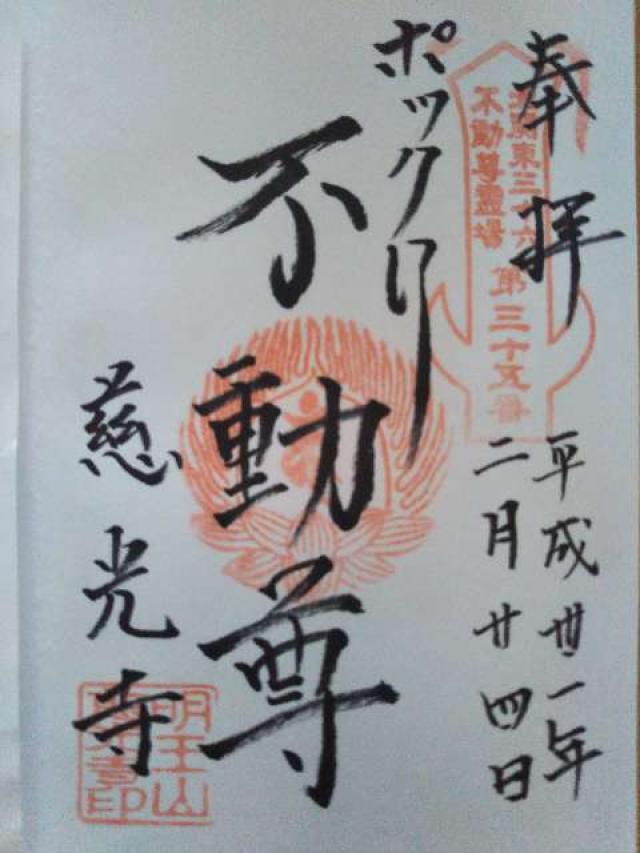 奉拝
北関東三十六
不動尊霊場
第三十五番
平成丗一年
二月廿四日
ポックリ
不動尊
慈光寺
明王山